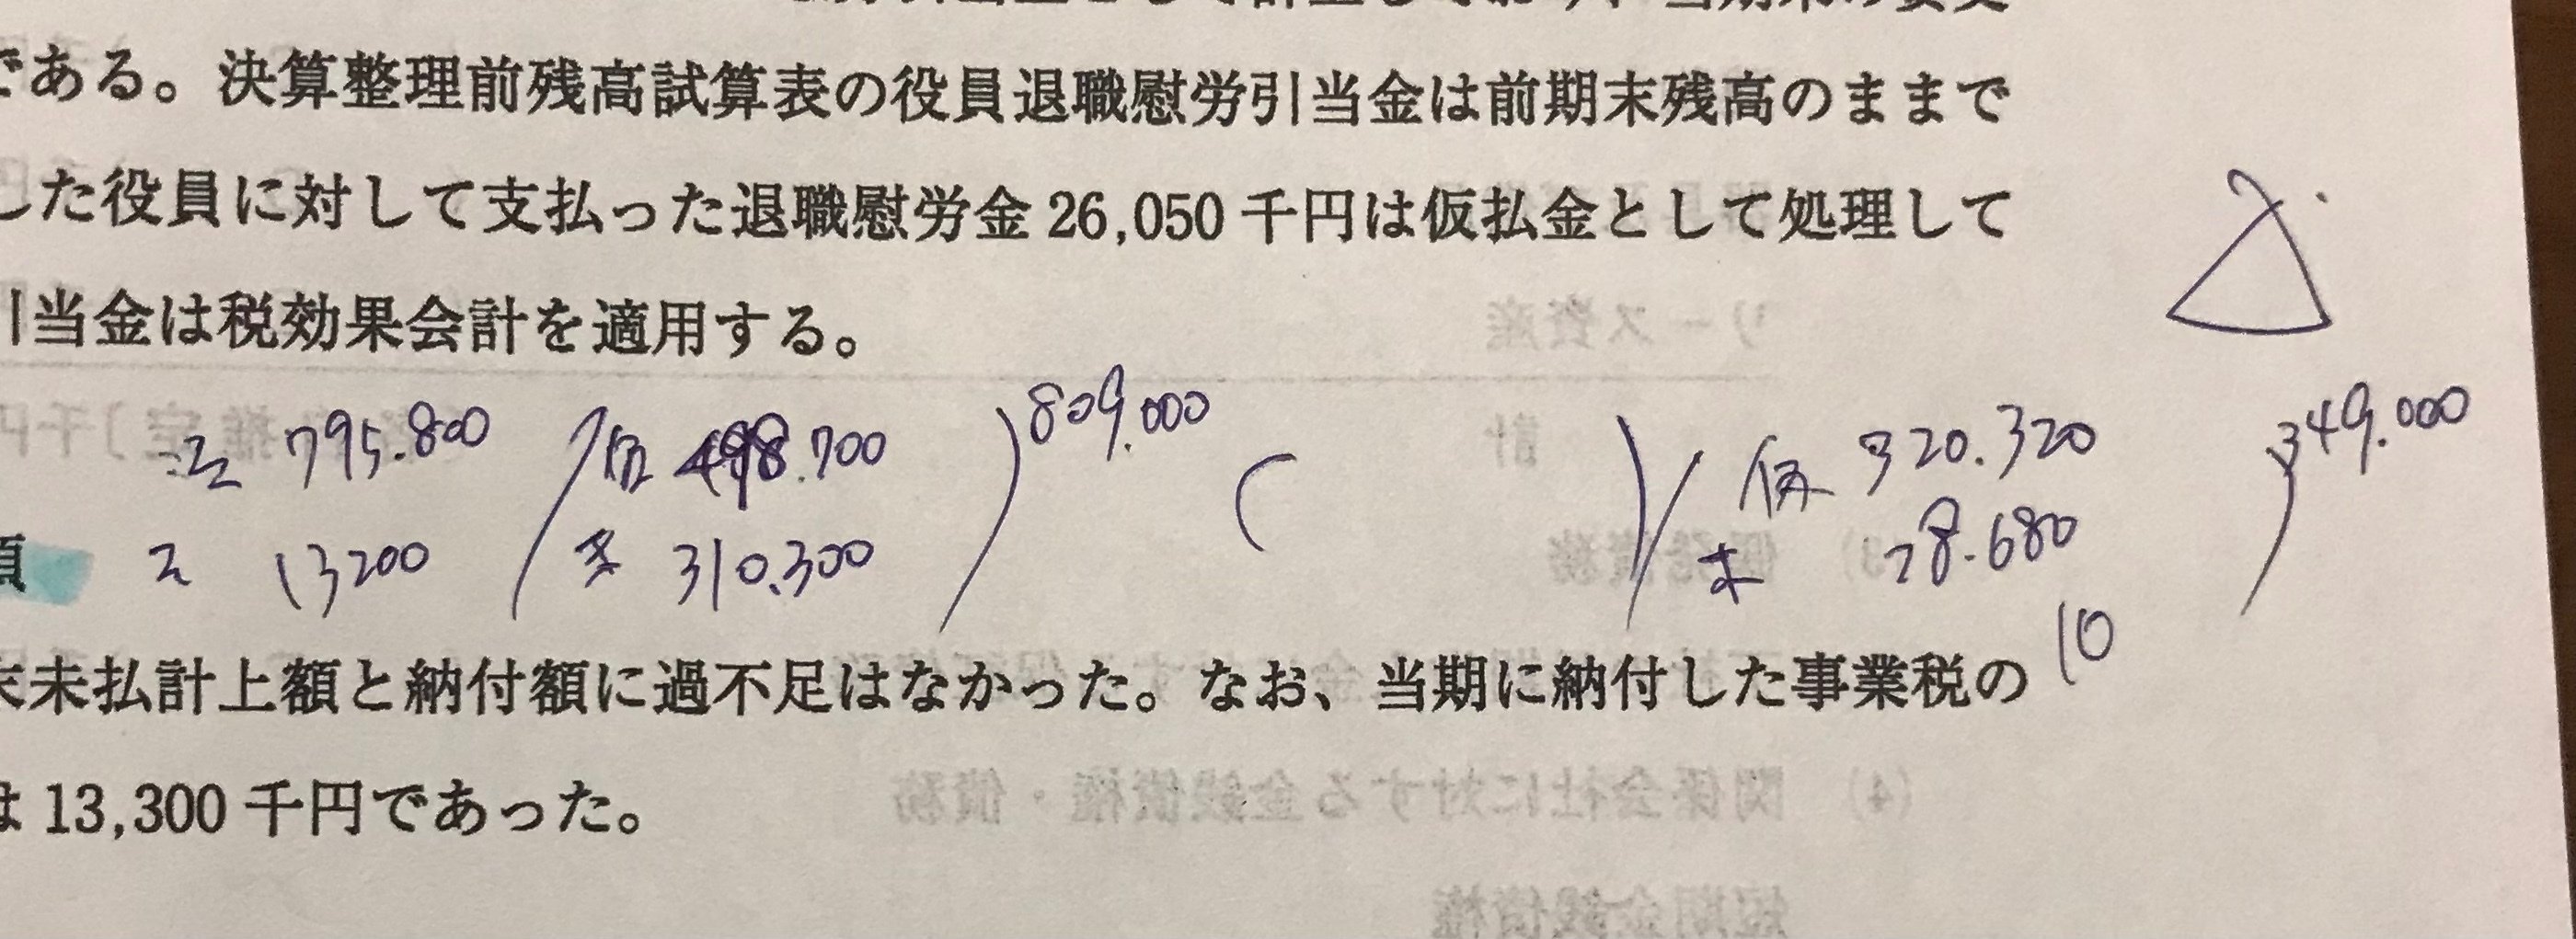 である。決算整理前残高試算表の役員退職慰労引当金は前期末残高のままで
した役員に対して支払った退職慰労金 26,050 千円は仮払金として処理して
引当金は税効果会計を適用する。
795.800 仮 498.700 809.000 仮 320.320 349.000
13200 未 310.300 未 28.680
10
末未払計上額と納付額に過不足はなかった。なお、当期に納付した事業税の
は 13,300 千円であった。